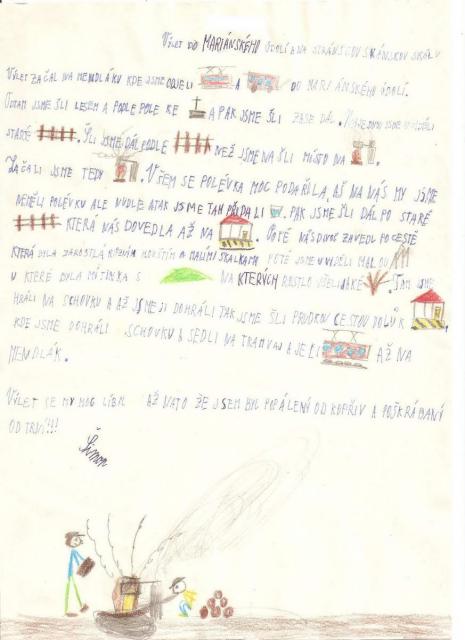 VÝLET DO MARIÁNSKÉHO ÚDOLÍ A NA STRÁNSKOU SKÁLU
VÝLET ZAČAL NA MENDLÁKU KDE JSME ODJELI A DO MARIÁNSKÉHO ÚDOLÍ.
POTOM JSME ŠLI LESEM A PODLE POLE KE A PAK JSME ŠLI ZASE DÁL. JSME
STARÉ . ŠLI JSME DÁL PODLE NEŽ JSME NAŠLI MÍSTO NA .
ZAČALI JSME TEDY . VŠEM SE POLÉVKA MOC PODAŘILA, AŽ NA NÁS MY JSME
NEMĚLI POLÉVKU ALE NUDLE A TAK JSME TAM PŘIDALI . PAK JSME ŠLI DÁL PO STARÉ
KTERÁ NÁS DOVEDLA AŽ NA . POTÉ NÁS ZAVEDL PO CESTĚ
KTERÁ BYLA ZAROSTLÁ HOUŠTÍM A MALÝMI SKALKAMI POTÉ JSME VIDĚLI MALOU
U KTERÉ BYLA MÍTINKA S NA KTERÝCH ROSTLO VŠELIJAKÉ . TAM JSME
HRÁLI NA SCHOVKU A AŽ JSME JI DOHRÁLI TAK JSME ŠLI PRUDKOU CESTOU DOLŮ K ,
KDE JSME DOHRÁLI SCHOVKU A SEDLI NA TRAMVAJ A JELI AŽ NA
MENDLÁK.
VÝLET SE MY MOC LÍBIL AŽ NA TO ŽE JSEM BYL POPÁLENÝ OD KOPŘIV A POŠKRÁBANÝ
OD TRNÍ!!!
Šimon